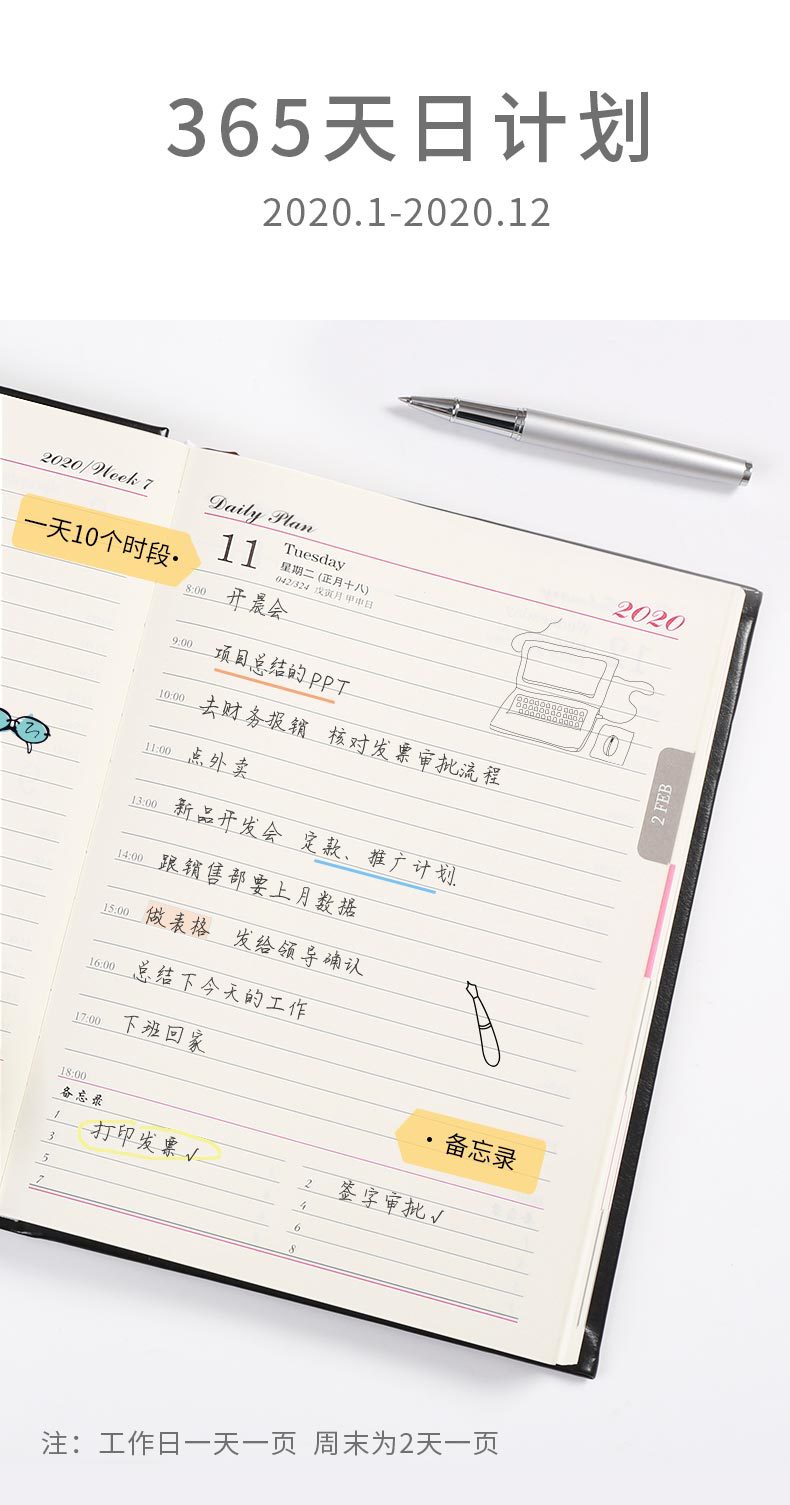 365天日计划
2020.1-2020.12
2020/Week 7
一天10个时段
Daily Plan
11 Tuesday
星期二 (正月十八)
042/324 戊寅月 甲申日
2020
8:00 开晨会
9:00 项目总结的PPT
10:00 去财务报销 核对发票审批流程
11:00 点外卖
13:00 新品开发会 定款、推广计划.
14:00 跟销售部要上月数据
15:00 做表格 发给领导确认
16:00 总结下今天的工作
17:00 下班回家
18:00
2 FEB
备忘录
·备忘录
1 打印发票√
2 签字审批√
3
4
5
6
7
8
注：工作日一天一页 周末为2天一页